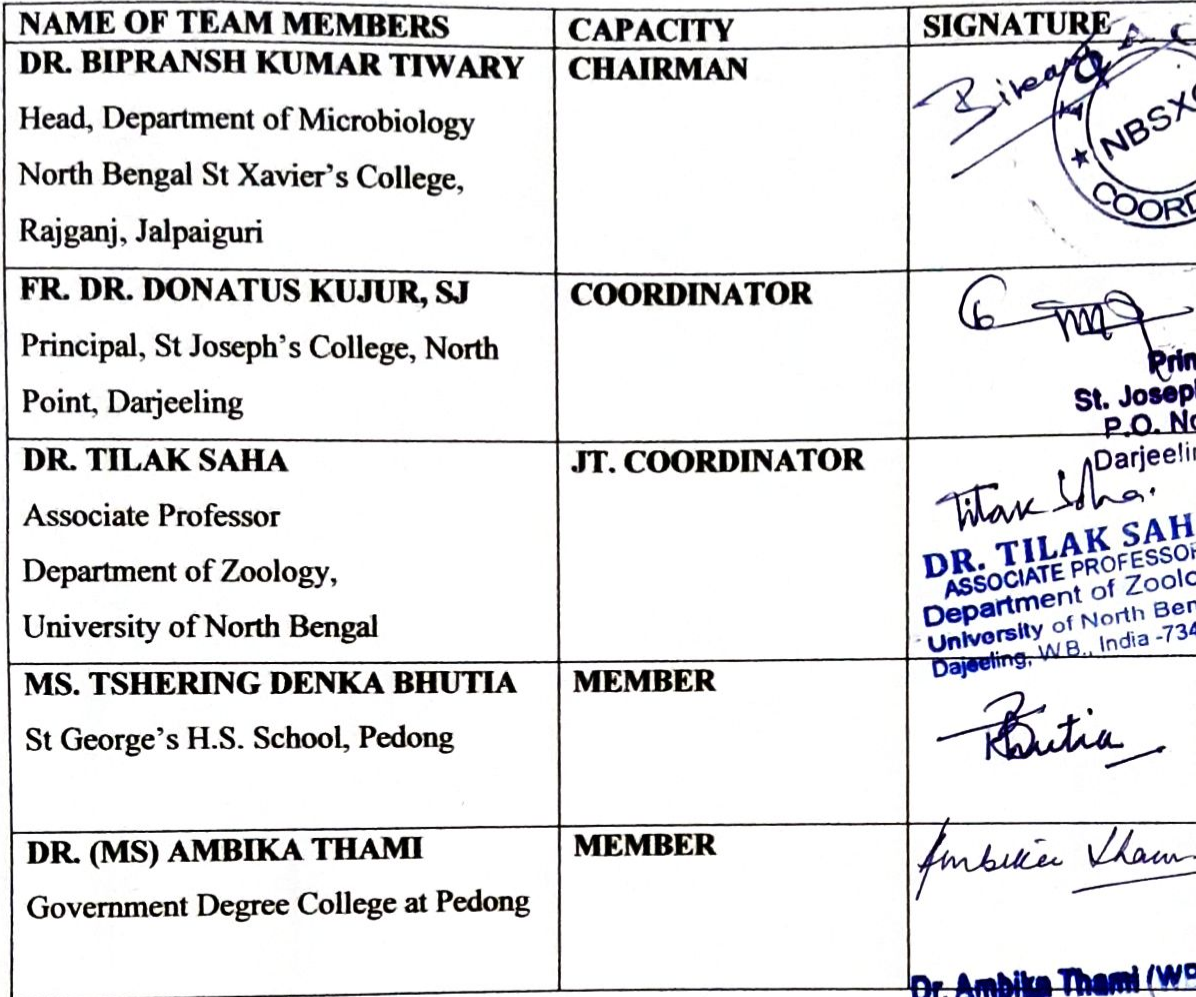 NAME OF TEAM MEMBERS CAPACITY SIGNATURE
DR. BIPRANSH KUMAR TIWARY CHAIRMAN
Head, Department of Microbiology
North Bengal St Xavier's College,
Rajganj, Jalpaiguri
NBSX
COORD
FR. DR. DONATUS KUJUR, SJ COORDINATOR
Principal, St Joseph's College, North
Point, Darjeeling
Prin
St. Joseph
P.O. No
Darjeelin
DR. TILAK SAHA JT. COORDINATOR
Associate Professor
Department of Zoology,
University of North Bengal
Tilak Saha.
DR. TILAK SAH
ASSOCIATE PROFESSOR
Department of Zoolo
University of North Ben
Dajeeling, W.B., India -734
MS. TSHERING DENKA BHUTIA MEMBER
St George's H.S. School, Pedong
Bhutia
DR. (MS) AMBIKA THAMI MEMBER
Government Degree College at Pedong
Ambika Tham
Dr. Ambika Thami (WB